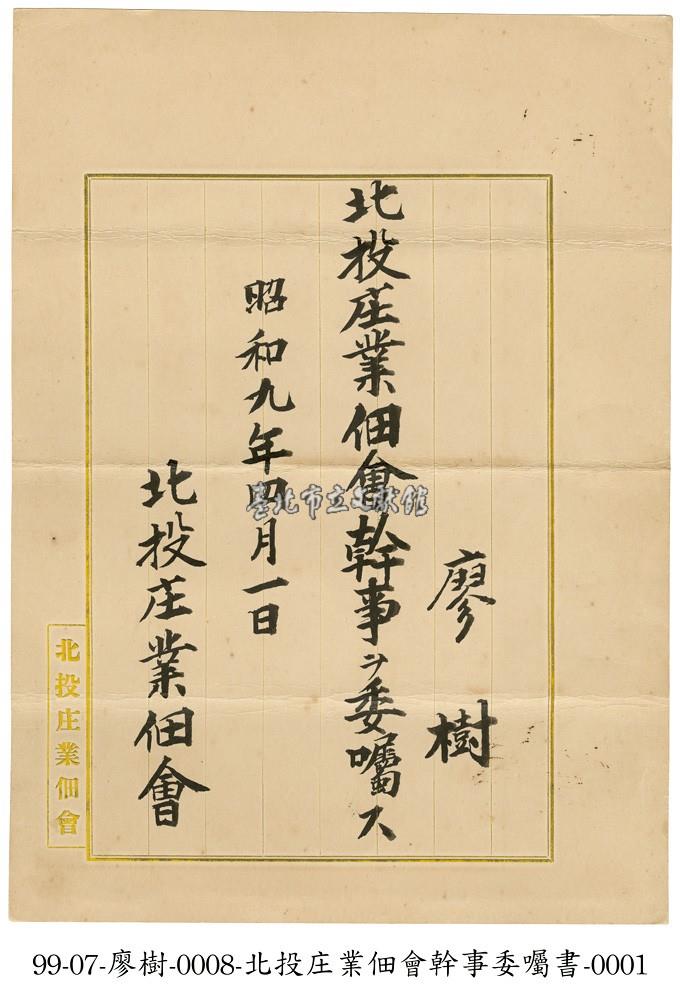 廖樹
北投庄業佃會幹事ヲ委囑ス
昭和九年四月一日
北投庄業佃會
北投庄業佃會
臺北市立文獻館
99-07-廖樹-0008-北投庄業佃會幹事委囑書-0001